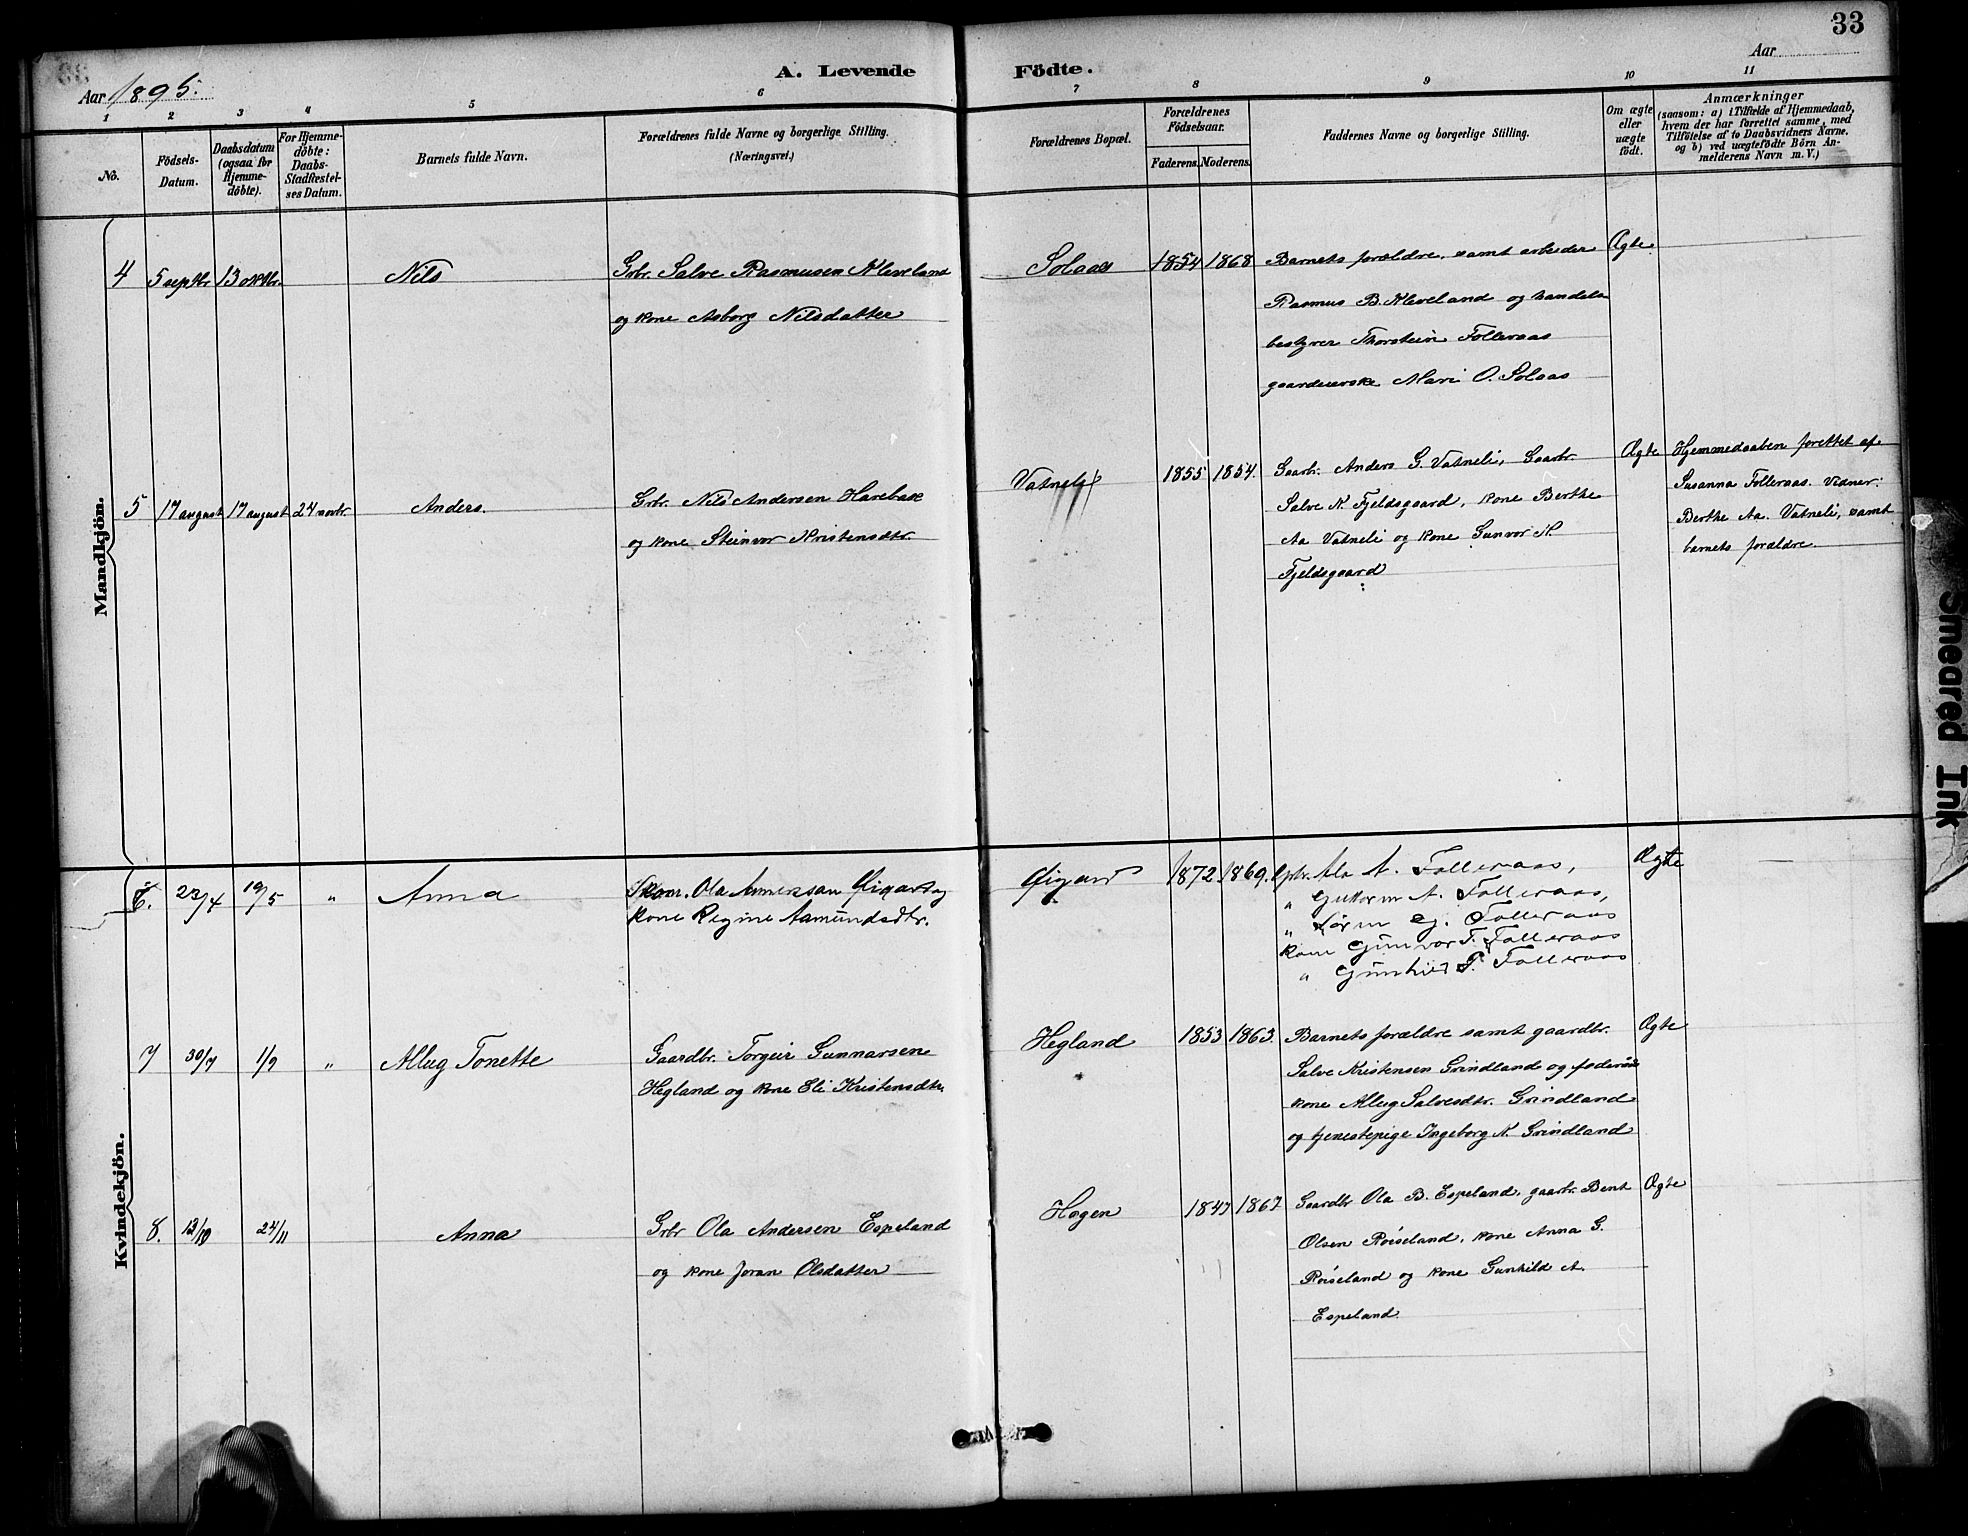 33
Aar 1895.
A. Levende
Födte.
Aar
1 2 3 4 5 6 7 8 9 10 11
No.
Födsels-Datum.
Daabsdatum (ogsaa for Hjemme-döbte).
For Hjemme-döbte: Daabs-Stadfæstel-ses Datum.
Barnets fulde Navn.
Forældrenes fulde Navne og borgerlige Stilling.
(Næringsvei.)
Forældrenes Bopæl.
Forældrenes Födselsaar.
Faderens. Moderens.
Faddernes Navne og borgerlige Stilling.
Om ægte eller uægte født.
Anmærkninger
(saasom: a) i Tilfælde af Hjemmedaab,
hvem der har forrettet samme, med
Tilföielse af to Daabsvidners Navne.
og b) ved uægtefödte Börn An-
melderens Navn m. V.)
Mandkjön.
4 5 septbr. 13 oktbr. Nils
Gbr. Salve Rasmusen Kleveland
og kone Asborg Nilsdatter
Solaas 1854 1868
Barnets forældre, samt arbeider
Rasmus B. Kleveland og handels
bestyrer Thorstein Folleraas
Mari O. Solaas
Ægte
5 17 august 17 august 24 novbr. Anders
Gbr. Nils Andersen Harebak
og kone Steinvor Kristensdtr.
Vatneli 1855 1854.
Gaarbr. Anders G. Vatneli, Gaarbr.
Salve N. Fjeldsgaard, kone Berthe
Aa Vatneli og kone Gunvor N.
Fjeldsgaard
Ægte
Hjemmedaaben forettet af
Susanna Folleraas. Vidner:
Berthe Aa. Vatneli, samt
barnets forældre.
Kvindekjön.
6. 23/4 19/5 " Anna
Ola Øigart og
kone Regine Aamundsdtr.
Øigard 1872. 1869.
A. Folleraas,
" Guttorm A. Folleraas,
" Folleraas
kone Gunvor T. Folleraas
" Gunhild T. Folleraas
Ægte
7 30/7 1/9 " Allug Tonette
Gaardbr. Torgeir Gunnarsen
Hegland og kone Eli Kristensdtr.
Hegland 1853 1863.
Barnets forældre samt gaardbr.
Salve Kristensen Grindland og føderåds
kone Allug Salvesdtr. Grindland
og tjenestepige Ingeborg K. Grindland
Ægte
8. 13/10 24/11 Anna
Gbr Ola Andersen Espeland
og kone Joran Olsdatter
Hagen 1847 1867
Gaardbr Ola B. Espeland, gaarbr. Bent
Olsen Røiseland, kone Anna G.
Røiseland og kone Gunhild A.
Espeland
Ægte
Smeared Ink